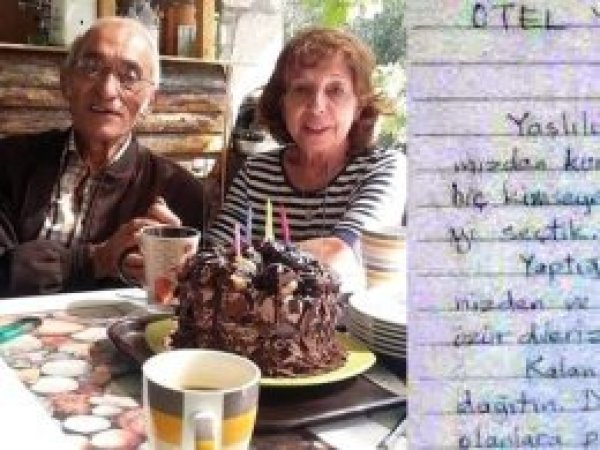 OTEL
Yaşlılı
mızdan kur
hiç kimsey
yı seçtik.
Yaptığ
nizden ve
özür dileriz
Kalan
dağıtın. D
olanlara p